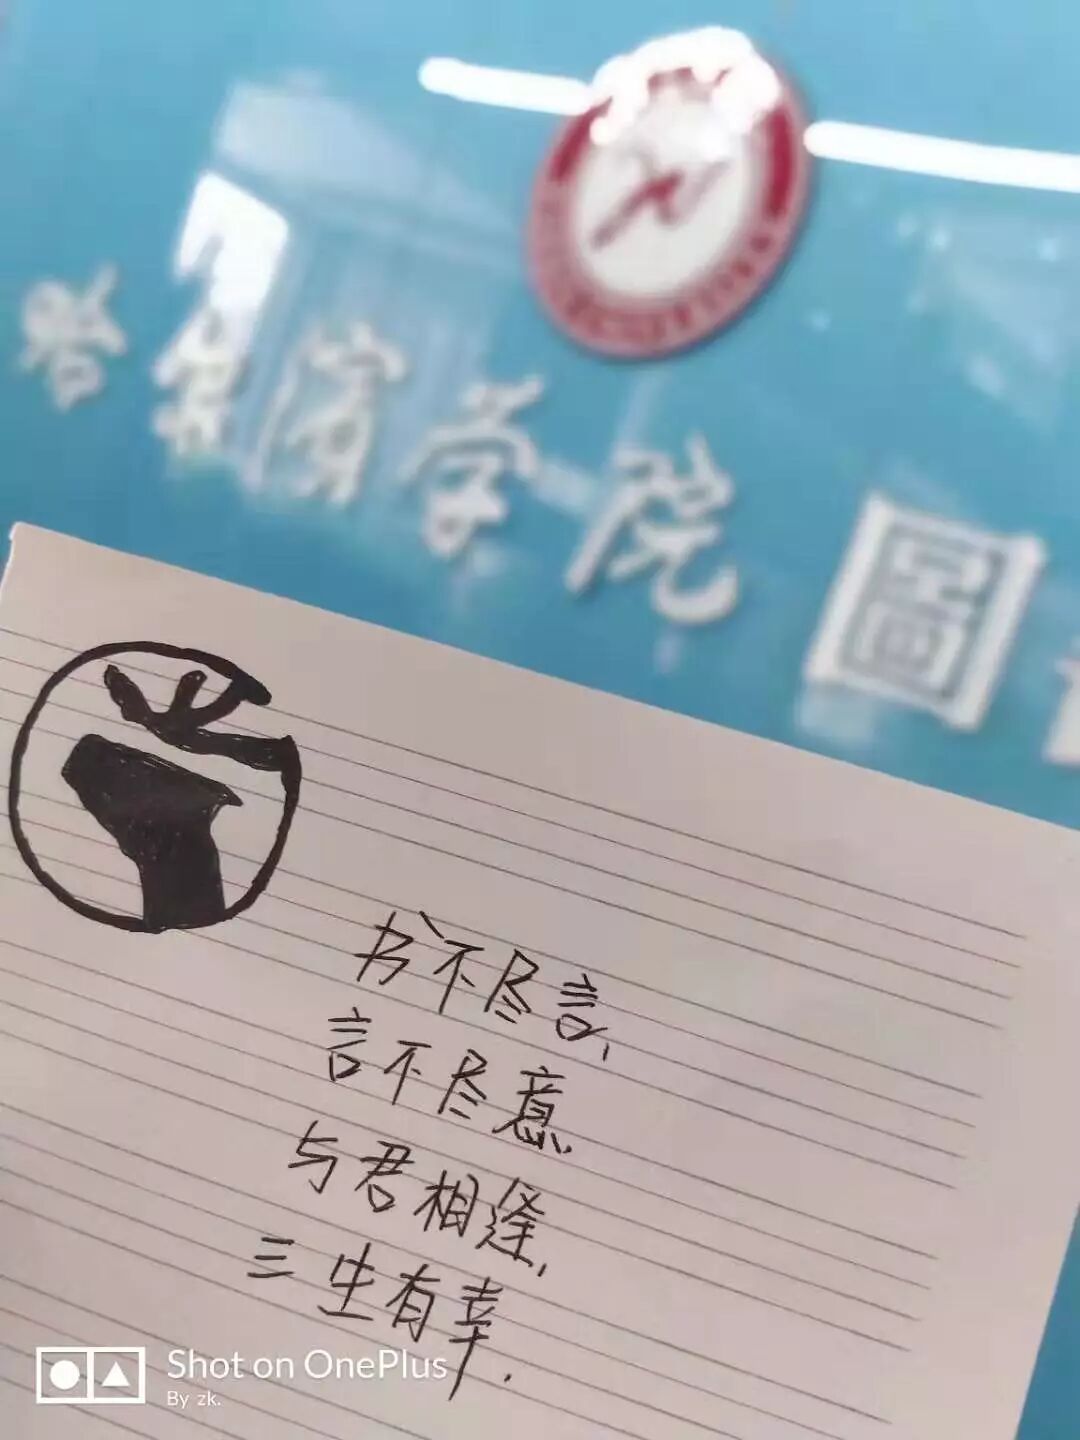 哈尔滨学院圖
书不尽言、
言不尽意、
与君相逢、
三生有幸.
Shot on OnePlus
By zk.